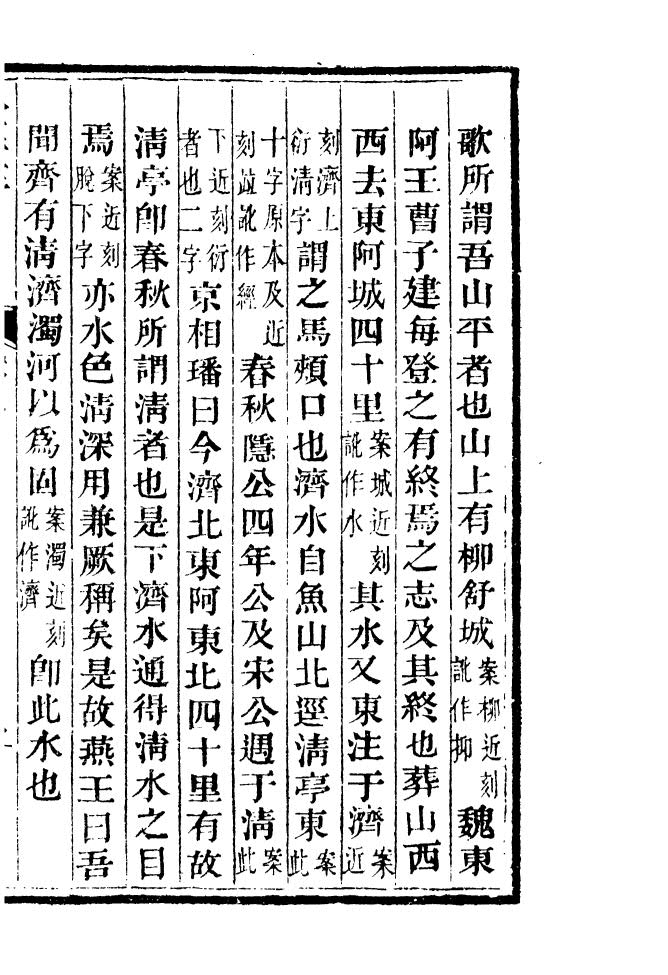 歌所謂吾山平者也山上有柳舒城案柳近刻訛作抑魏東
阿王曹子建每登之有終焉之志及其終也葬山西
西去東阿城四十里案城近刻訛作水其水又東注于濟案近
刻濟上衍清字謂之馬頰口也濟水自魚山北逕清亭東案此
十字原本及近刻竝訛作經春秋隱公四年公及宋公遇于清案此
下近刻衍者也二字京相璠曰今濟北東阿東北四十里有故
清亭卽春秋所謂清者也是下濟水通得清水之目
焉案近刻脫下字亦水色清深用兼厥稱矣是故燕王曰吾
聞齊有清濟濁河以爲固案濁近刻訛作濟卽此水也